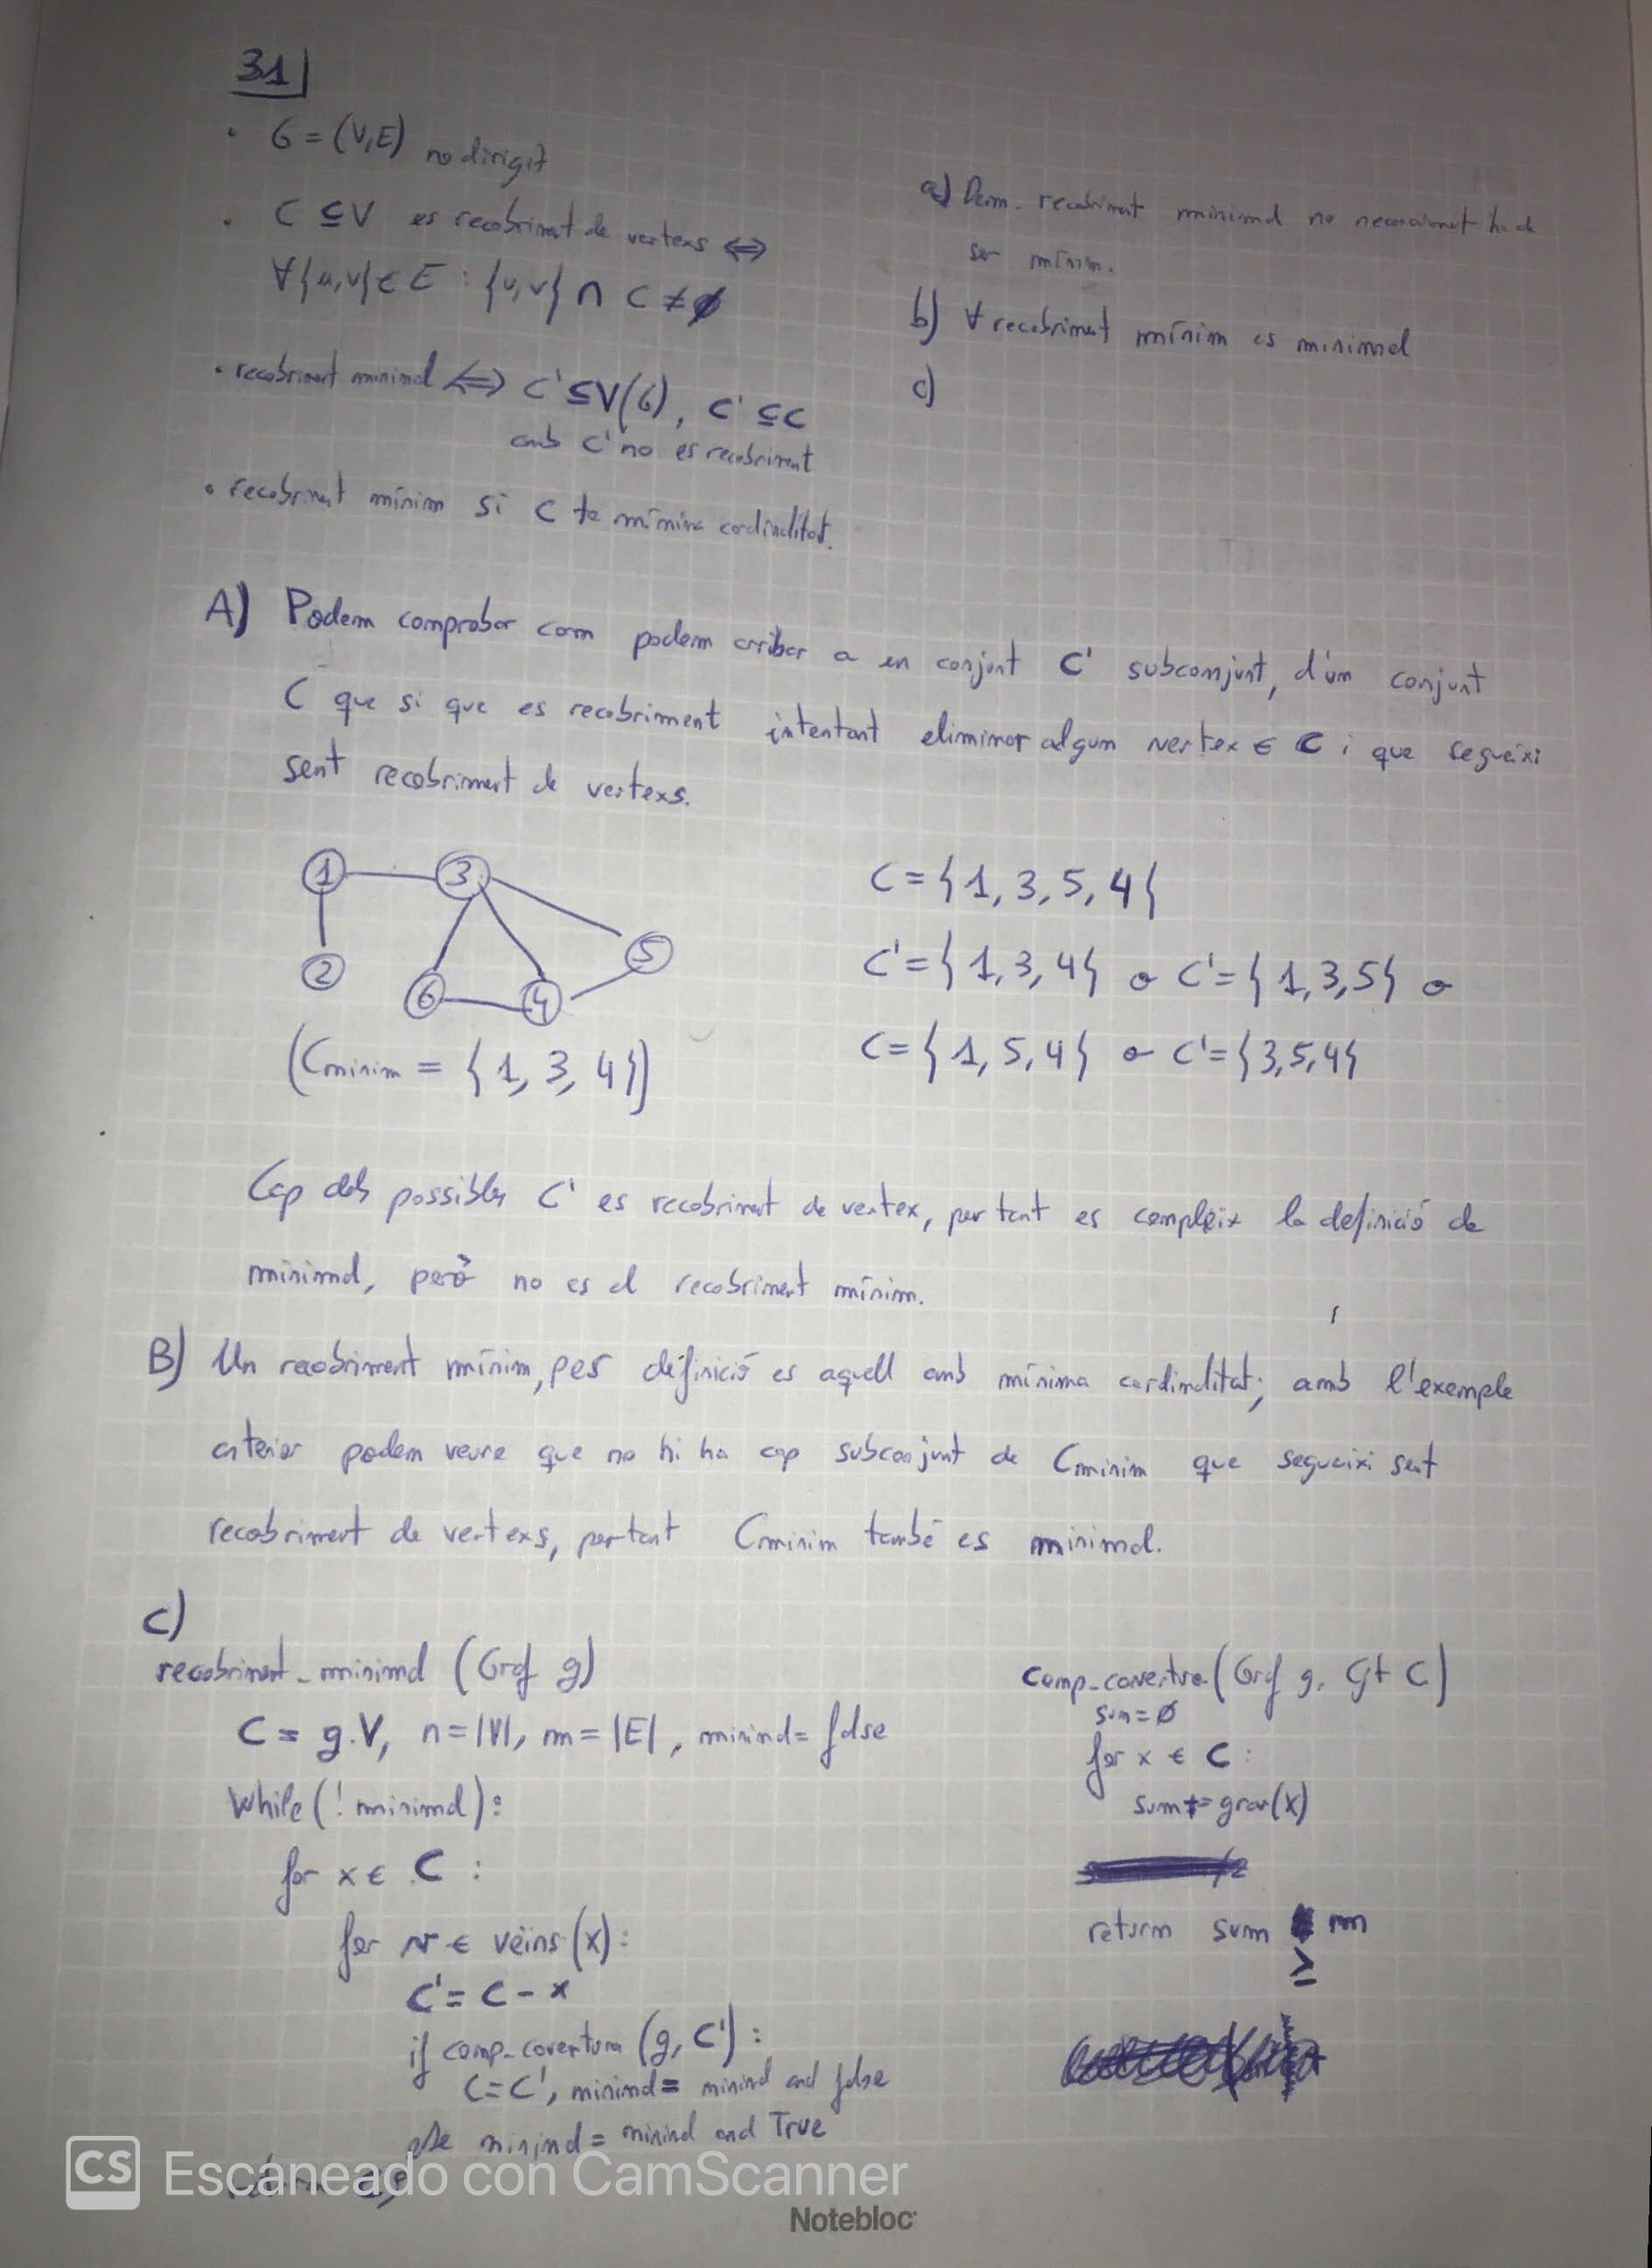 31
· G = (V,E) no dirigit
· C ⊆ V es recobriment de vertexs ⇔
∀{u,v} ∈ E : {u,v} ∩ C ≠ ∅
· recobriment minimal ⇔ C' ⊆ V(G), C' ⊆ C
amb C' no es recobriment
· recobriment mínim si C te mínima cardinalitat.
a) Dem. recobriment minimal no necessariament ha de
ser mínim.
b) ∀ recobriment mínim es minimal
c)
A) Podem comprobar com podem arribar a un conjunt C' subconjunt, d'un conjunt
C que si que es recobriment intentant eliminar algun vertex ∈ C i que segueixi
sent recobriment de vertexs.
1 3
2 6 4 5
(Cminim = {1, 3, 4})
C = {1, 3, 5, 4}
C' = {1, 3, 4} o C' = {1, 3, 5} o
C = {1, 5, 4} o C' = {3, 5, 4}
Cap dels possibles C' es recobriment de vertex, per tant es compleix la definició de
minimal, però no es el recobriment mínim.
B) Un recobriment mínim, per definició es aquell amb mínima cardinalitat; amb l'exemple
anterior podem veure que no hi ha cap subconjunt de Cminim que segueixi sent
recobriment de vertexs, per tant Cminim també es minimal.
C)
recobriment_minimal (Graf g)
C = g.V, n = |V|, m = |E|, minimal = false
While (! minimal):
for x ∈ C :
for v ∈ veins (x):
C' = C - x
if comp_covertura (g, C') :
C = C', minimal = minimal and false
else minimal = minimal and True
return C;
comp_covertura (Graf g, Cjt C)
sum = 0
for x ∈ C :
sum += grau(x)
return sum ≥ m
CS Escaneado con CamScanner
Notebloc